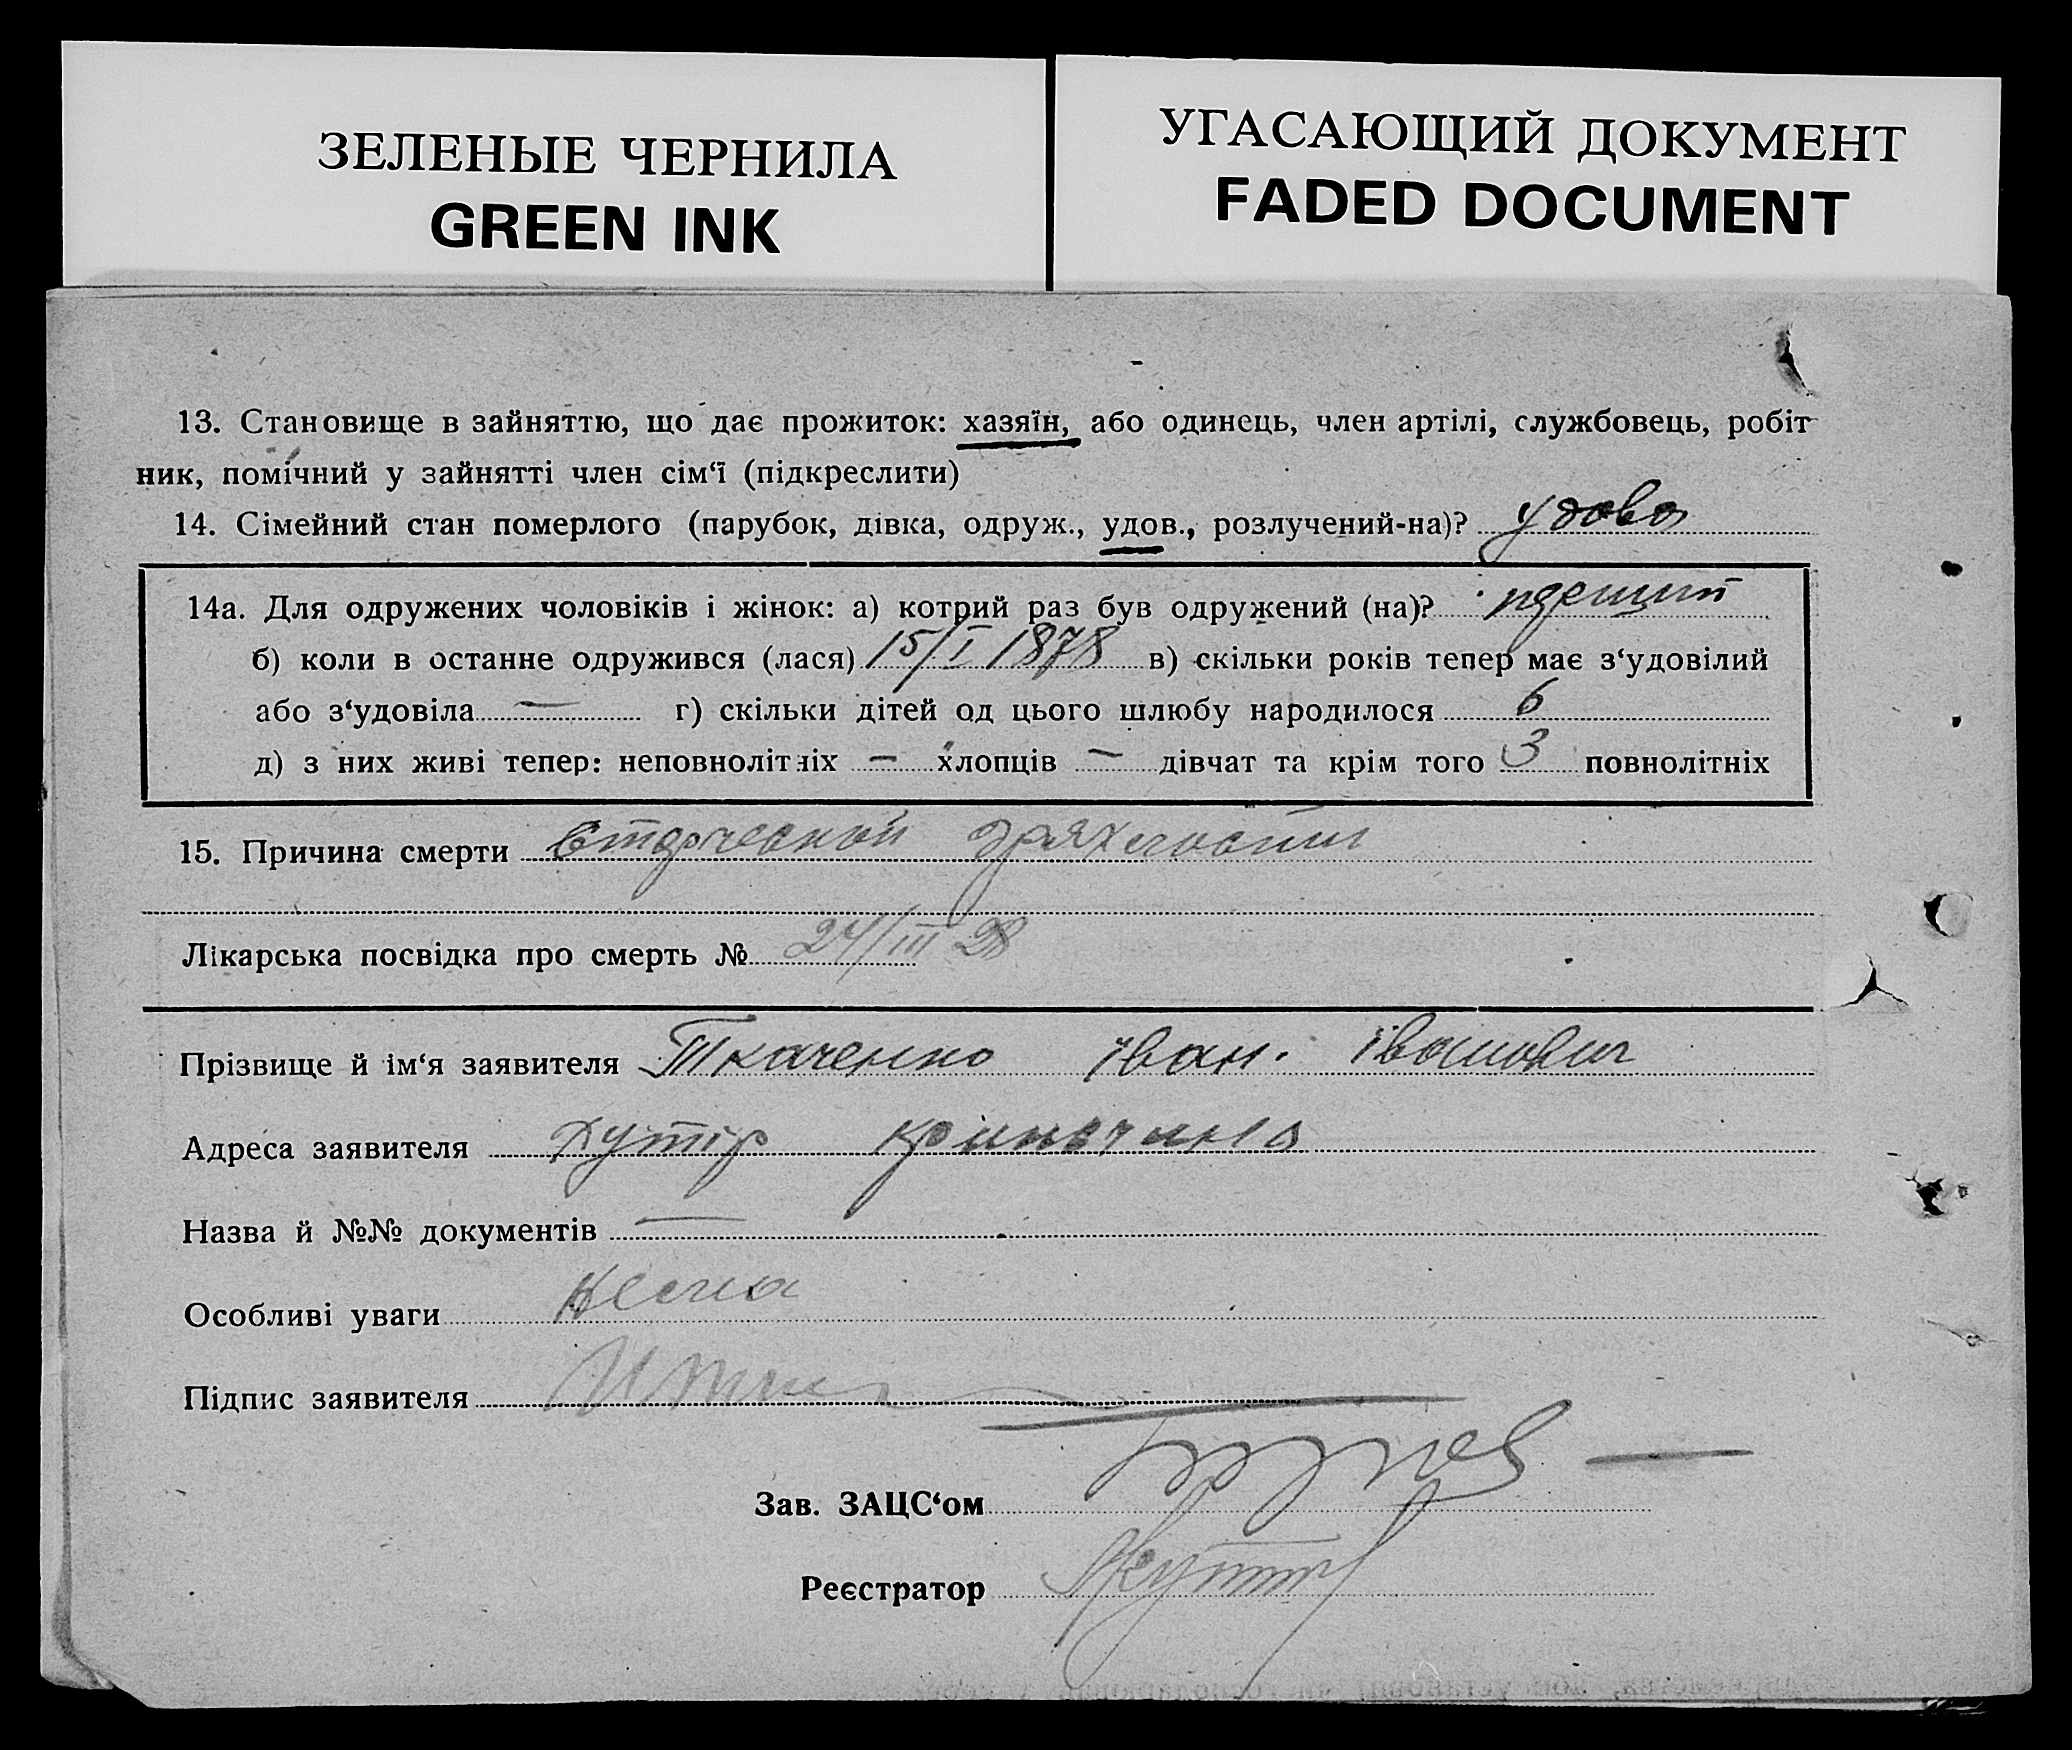 ЗЕЛЕНЫЕ ЧЕРНИЛА
GREEN INK
УГАСАЮЩИЙ ДОКУМЕНТ
FADED DOCUMENT
13. Становище в зайняттю, що дає прожиток: хазяїн, або одинець, член артілі, службовець, робіт-
ник, помічний у зайнятті член сім‘ї (підкреслити)
14. Сімейний стан померлого (парубок, дівка, одруж., удов., розлучений-на)? удова
14а. Для одружених чоловіків і жінок: а) котрий раз був одружений (на)?
б) коли в останне одружився (лася) 15/I 1878 в) скільки років тепер має з‘удовілий
або з‘удовіла — г) скільки дітей од цього шлюбу народилося 6
д) з них живі тепер: неповнолітніх — хлопців — дівчат та крім того 3 повнолітніх
15. Причина смерти Старческой дряхлости
Лікарська посвідка про смерть № 24/III 28
Прізвище й ім‘я заявителя Ткаченко Іван. Іванович
Адреса заявителя Хутір
Назва й №№ документів —
Особливі уваги нема
Підпис заявителя
Зав. ЗАЦС‘ом
Реєстратор